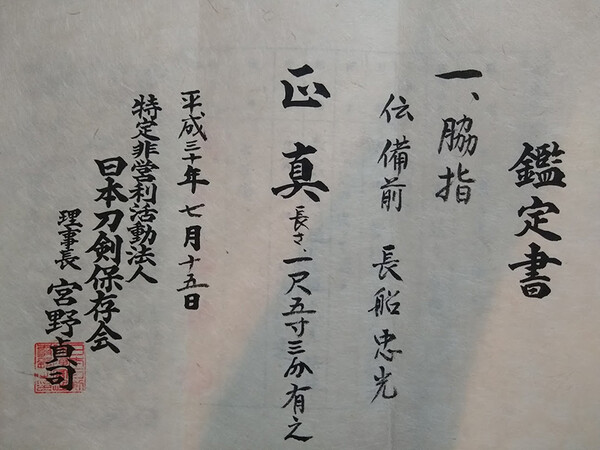 鑑定書
一、脇指
伝備前 長船忠光
正真 長さ、一尺五寸三分有之
平成三十年七月十五日
特定非営利活動法人
日本刀剣保存会
理事長 宮野貞司